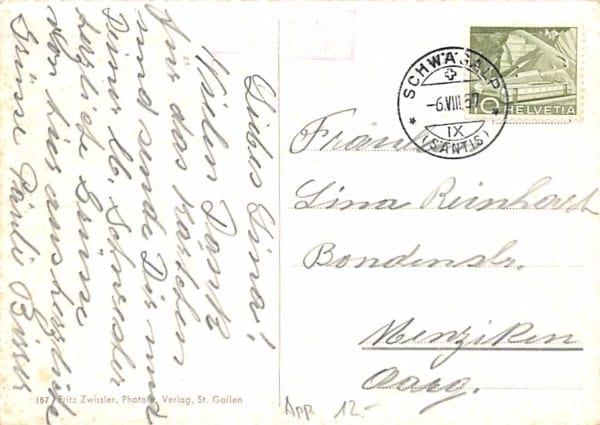 Liebes Lina!
Vielen Dank
für das Kärtchen
und sende Dir und
Deiner lb. Schwester
herzliche Grüsse
von hier aus herzliche
Grüsse Päuli
SCHWÄGALP
-6.VIII.5
IX
(SÄNTIS)
10 HELVETIA
Fräulein
Lina Reinhard
Bondenstr.
Menziken
Aarg.
157 Fritz Zwissler, Photo-Verlag, St. Gallen
App. 12.-